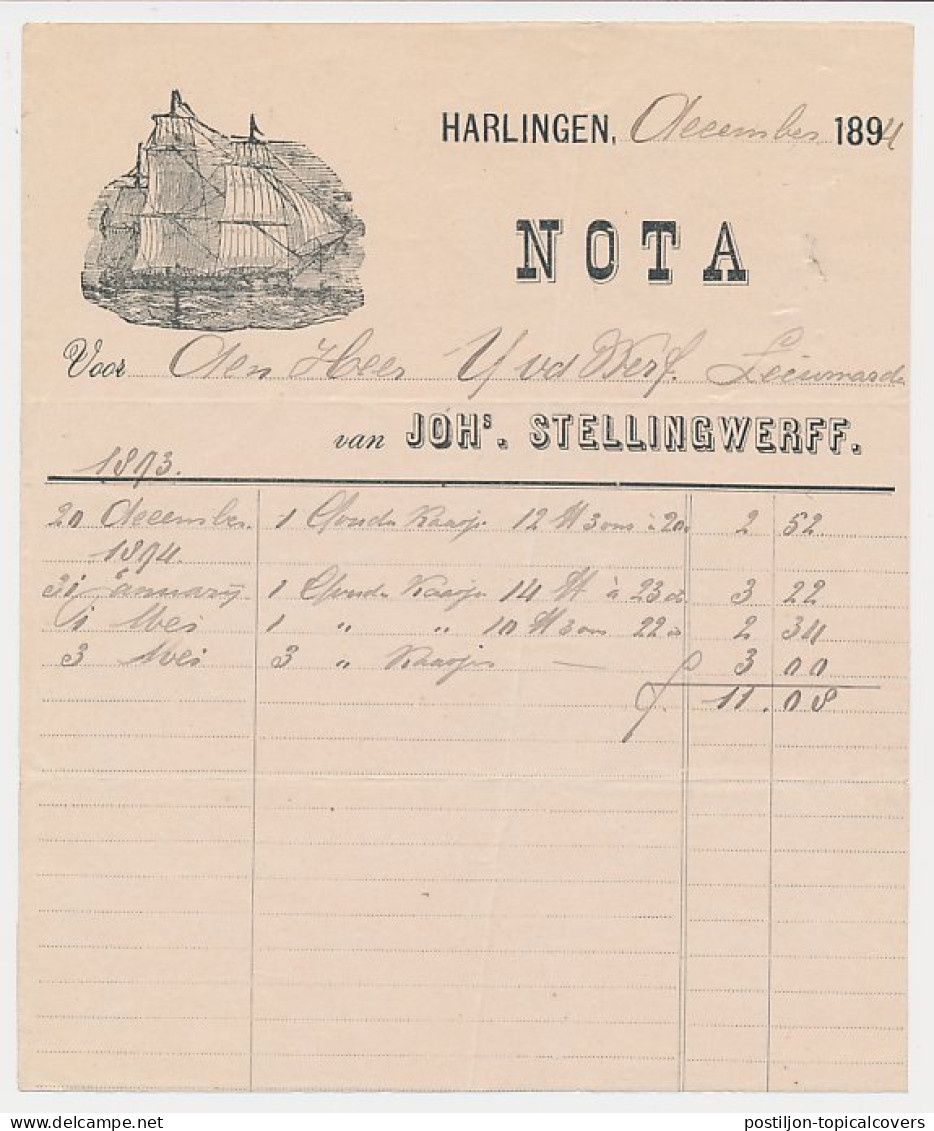 HARLINGEN, December 1894
NOTA
Voor den Heer Y vd Werf. Leeuwarde
van JOHs. STELLINGWERFF.
1893.
20 December 1 Goudse Kaasje 12 ℔ 3 ons à 20 2 52
1894.
31 Januarij 1 Goudse Kaasje 14 ℔ à 23 ct 3 22
1 Mei 1 " " 10 ℔ 3 ons 22 ct 2 34
3 Mei 3 " Kaasjes — 3 00
f. 11.08
postiljon-topicalcovers